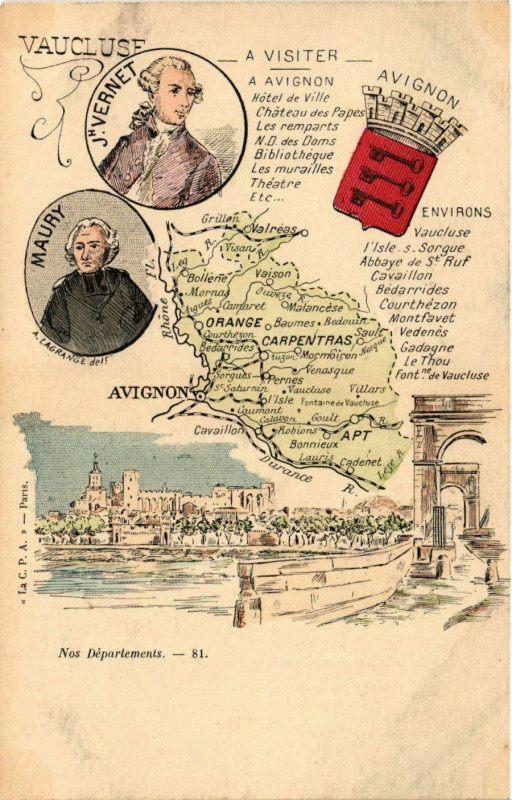 VAUCLUSE
JH VERNET
MAURY
A. LAGRANGE delt
A VISITER
A AVIGNON
Hôtel de Ville
Château des Papes
Les remparts
N.D. des Doms
Bibliothèque
Les murailles
Théatre
Etc...
AVIGNON
ENVIRONS
Vaucluse
l'Isle . s. Sorgue
Abbaye de St Ruf
Cavaillon
Bédarrides
Courthézon
Montfavet
Vedenès
Gadagne
Le Thou
Fontne de Vaucluse
Grillon
Valréas
Visan
R.
Leg
R.
Bollène
Vaison
Mornas
Ouvèze R.
Aigues
Camaret
Malancèse
Rhône Fl.
ORANGE
Baumes
Redouin
Courthézon
CARPENTRAS
Sault
Nesque
Bédarrides
Auzon
Mormoiron
Venasque
Sorgues
Pernes
St Saturnin
Vaucluse
Villars
AVIGNON
l'Isle
Fontaine de Vaucluse
Caumont
Calavon
Goult
Cavaillon
Robions
APT
Bonnieux
Lauris
Cadenet
Durance R.
Lèze R.
« La C. P. A. » — Paris.
Nos Départements. — 81.